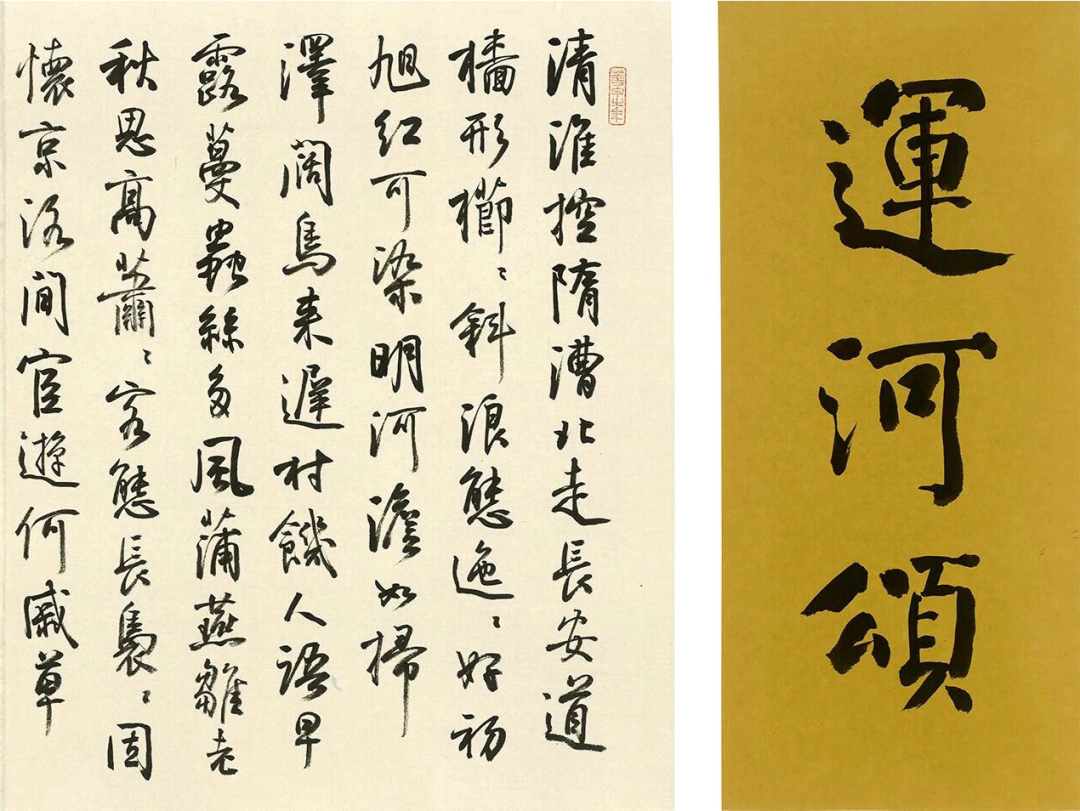 運河頌
清淮控隋漕北走長安道
檣形櫛〻斜浪態迤〻好初
旭紅可染明河澹如掃
澤闊鳥来遲村饑人語早
露蔓蟲絲多風蒲燕雛老
秋思高蕭〻客態長裊〻固
懷京洛間宦遊何戚草